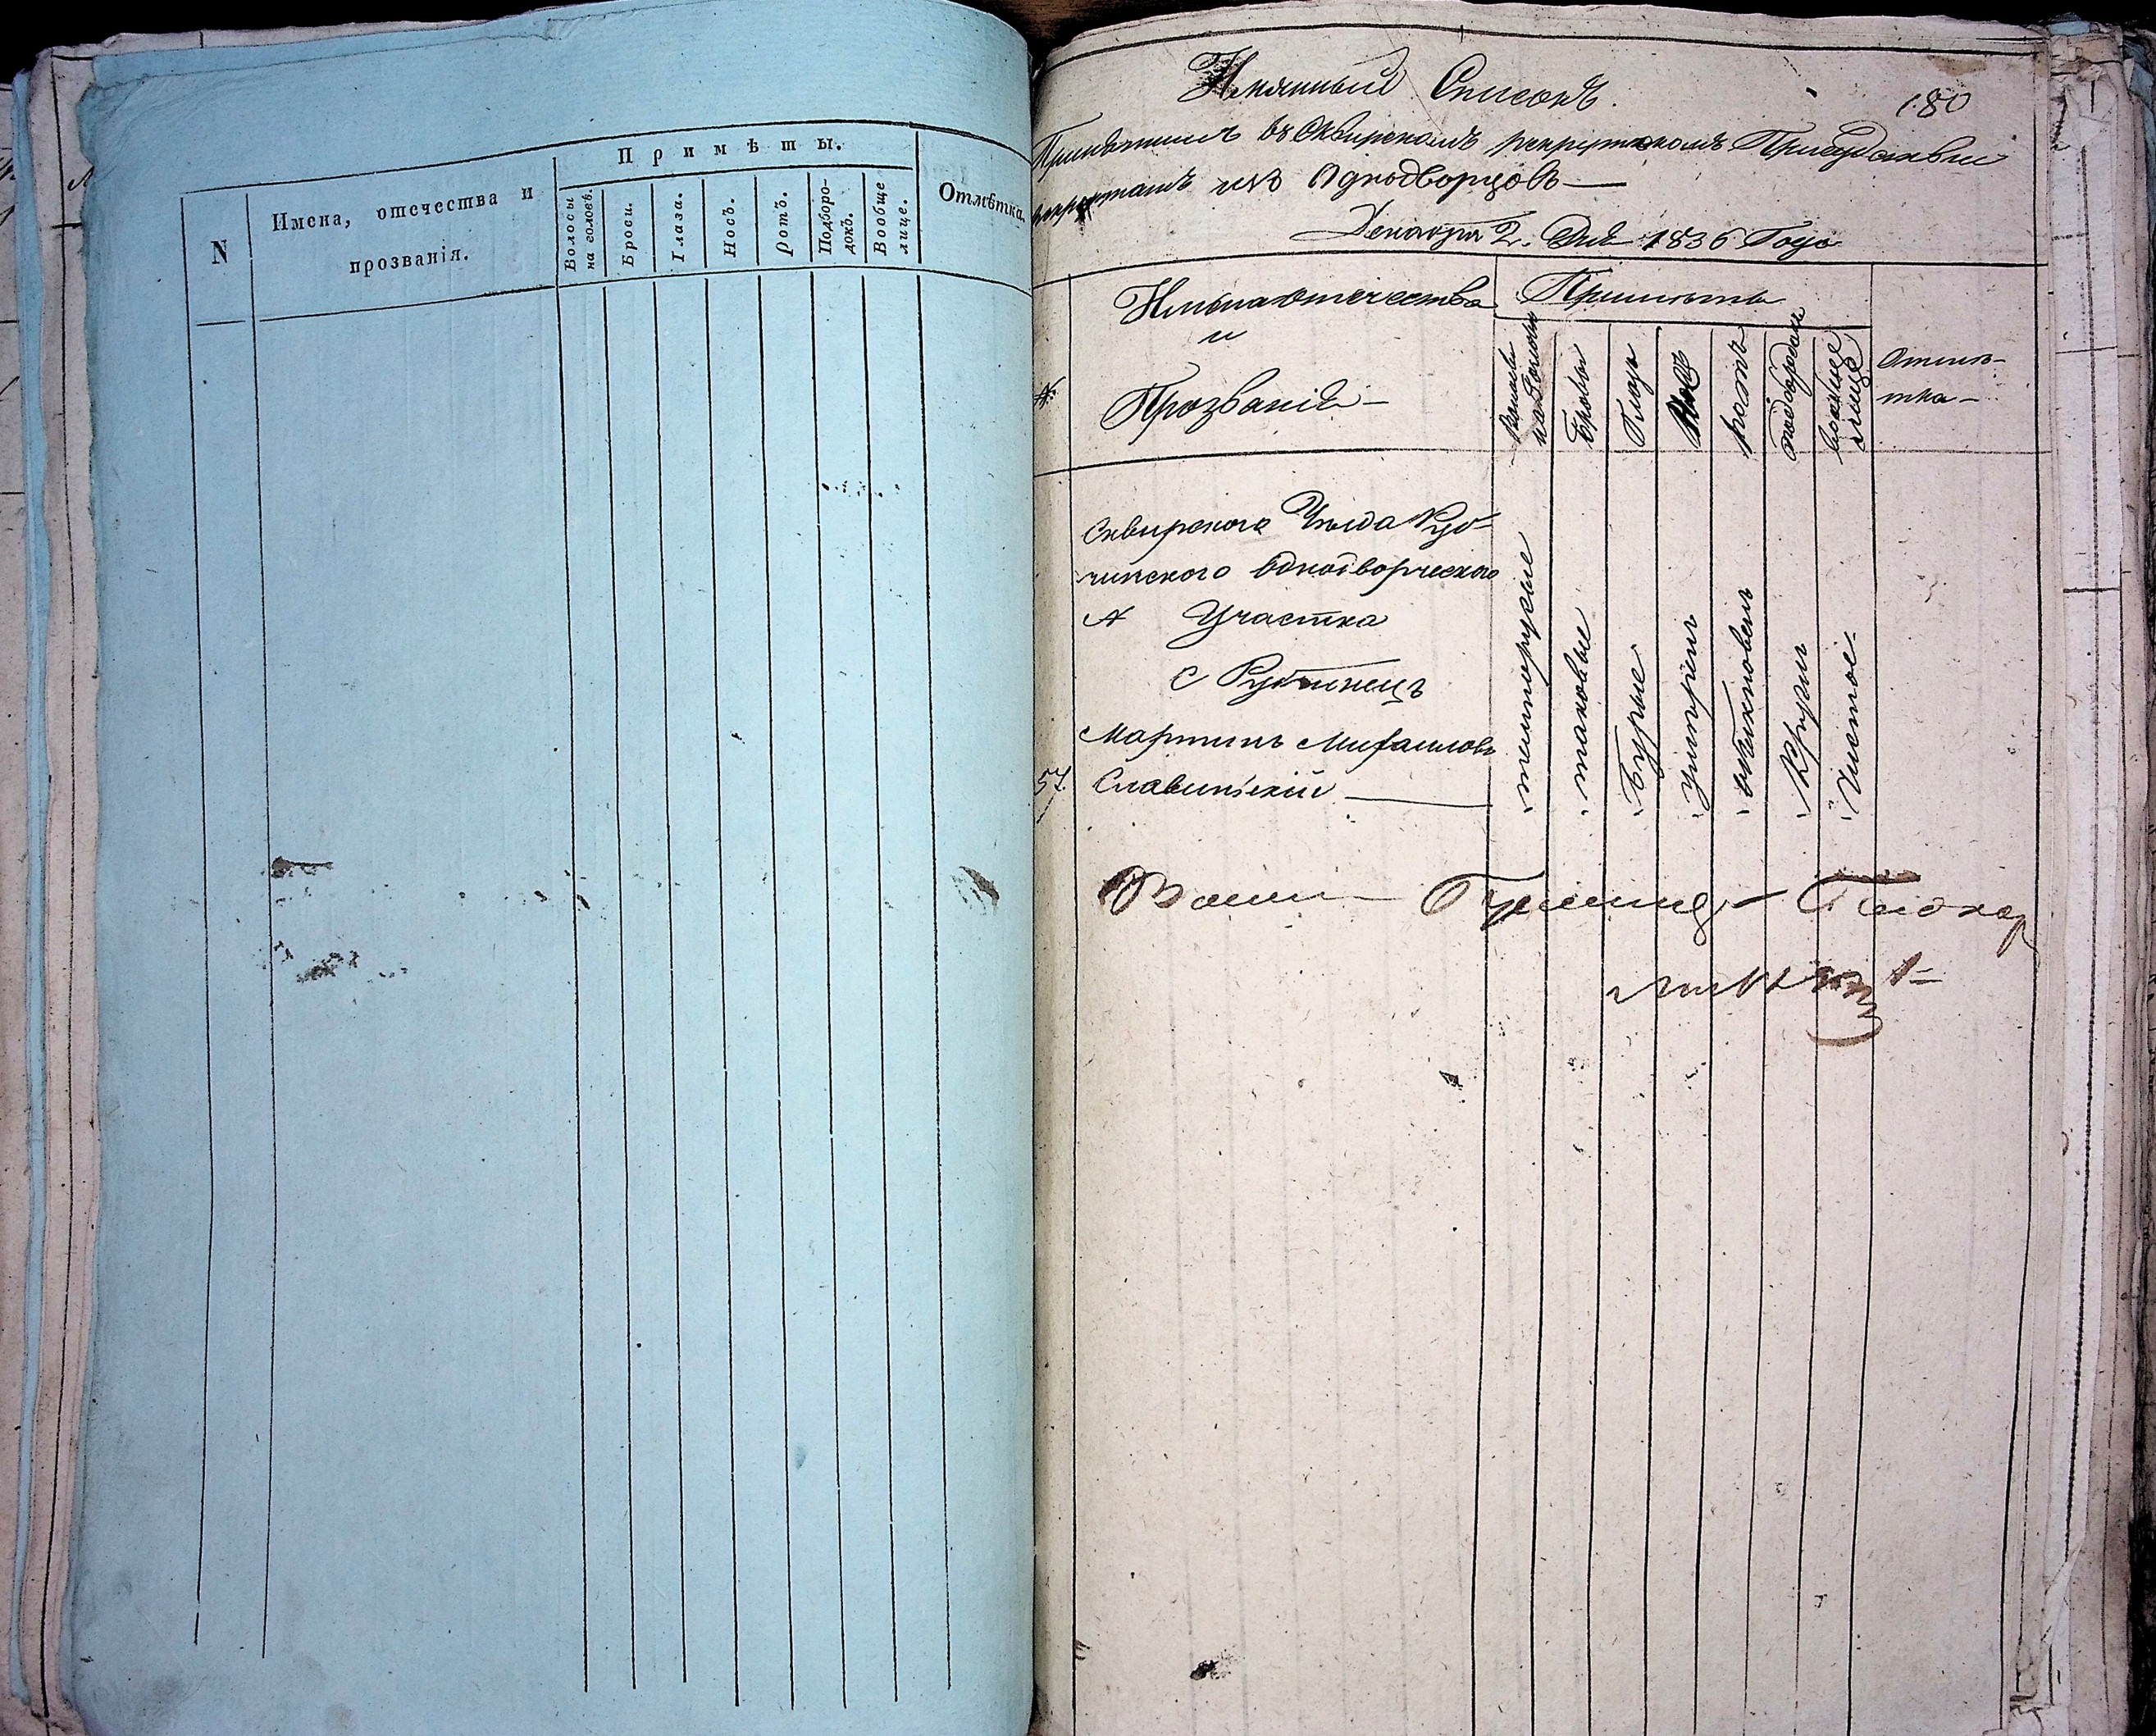 N
Имена, отечества и
прозванія.
Примѣты.
Волосы
на головѣ.
Брови.
Глаза.
Носъ.
Ротъ.
Подборо-
докъ.
Вообще
лице.
Отмѣтка.
Имянный Списокъ.
180
Принятымъ въ Сквирскомъ рекрутскомъ Присудствіи
рекрутамъ изъ Однодворцовъ—
Декабря 2. Дня 1836 Года
№
Имена отечества
и
Прозваніи—
Примѣты
Волосы
на Голови
Брови
Глаза
Носъ
ротъ
подбородокъ
вообще
лице
Отмѣ-
тка—
Сквирского Уезда Руб-
чинского Однодворческого
Участка
С Рубченецъ
57. Мартинъ Михаиловъ
Славинскій
темнорусые
таковые
Бурые
умеренъ
обыкновенъ
Круглъ
Чистое